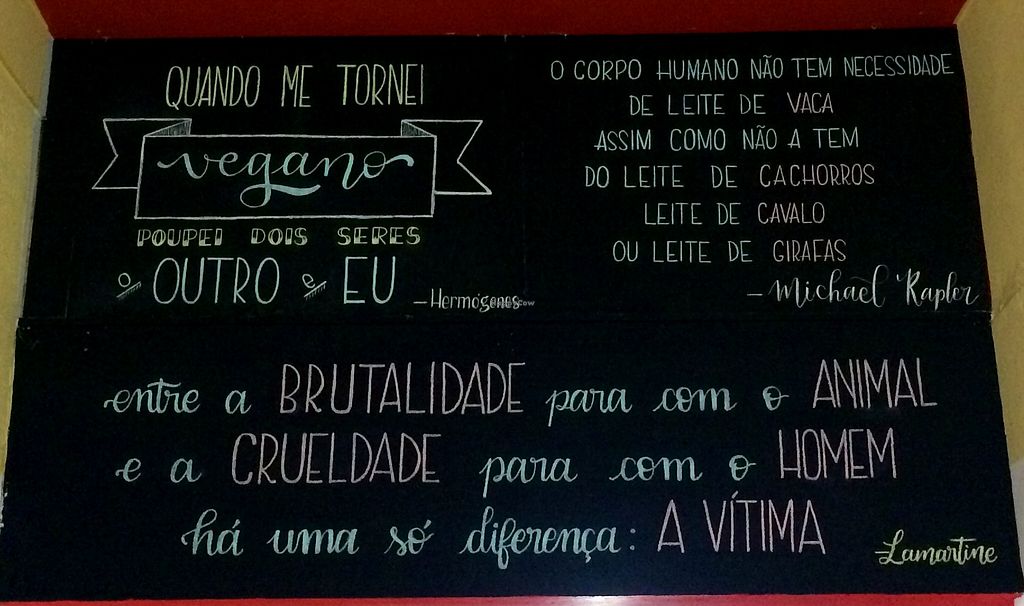 QUANDO ME TORNEI
vegano
POUPEI DOIS SERES
o OUTRO e EU
—Hermógenes
O CORPO HUMANO NÃO TEM NECESSIDADE
DE LEITE DE VACA
ASSIM COMO NÃO A TEM
DO LEITE DE CACHORROS
LEITE DE CAVALO
OU LEITE DE GIRAFAS
— Michael Rapler
entre a BRUTALIDADE para com o ANIMAL
e a CRUELDADE para com o HOMEM
há uma só diferença: A VÍTIMA
Lamartine